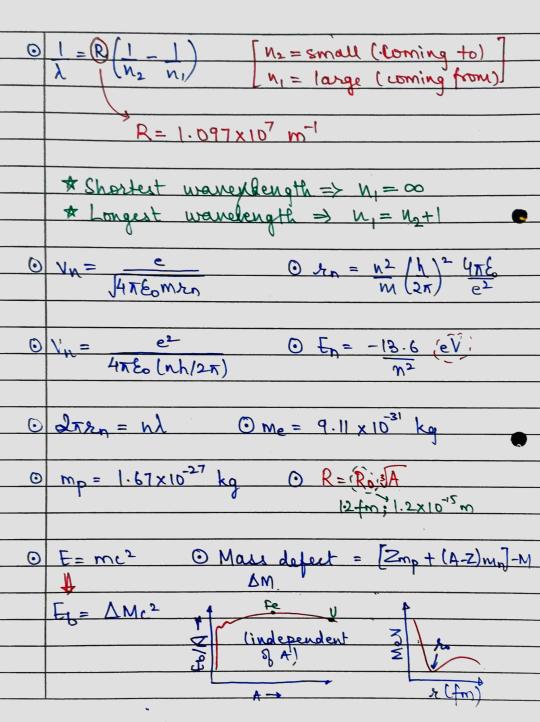 ⊙ 1/λ = R (1/n₂ - 1/n₁) [n₂ = small (coming to)
n₁ = large (coming from)]
R = 1.097×10⁷ m⁻¹
★ Shortest wavelength ⇒ n₁ = ∞
★ Longest wavelength ⇒ n₁ = n₂+1
⊙ Vn = e/√4πε₀mrn ⊙ rn = n²/m (h/2π)² 4πε₀/e²
⊙ Vn = e²/4πε₀(nh/2π) ⊙ En = -13.6/n² eV
⊙ 2πrn = nλ ⊙ me = 9.11×10⁻³¹ kg
⊙ mp = 1.67×10⁻²⁷ kg ⊙ R = R₀ ∛A
1.2 fm; 1.2×10⁻¹⁵ m
⊙ E = mc² ⊙ Mass defect = [Zmp + (A-Z)mn]-M
ΔM
Eb = ΔMc²
Fe U
(independent
of A)
A→
MeV
r₀
r (fm)